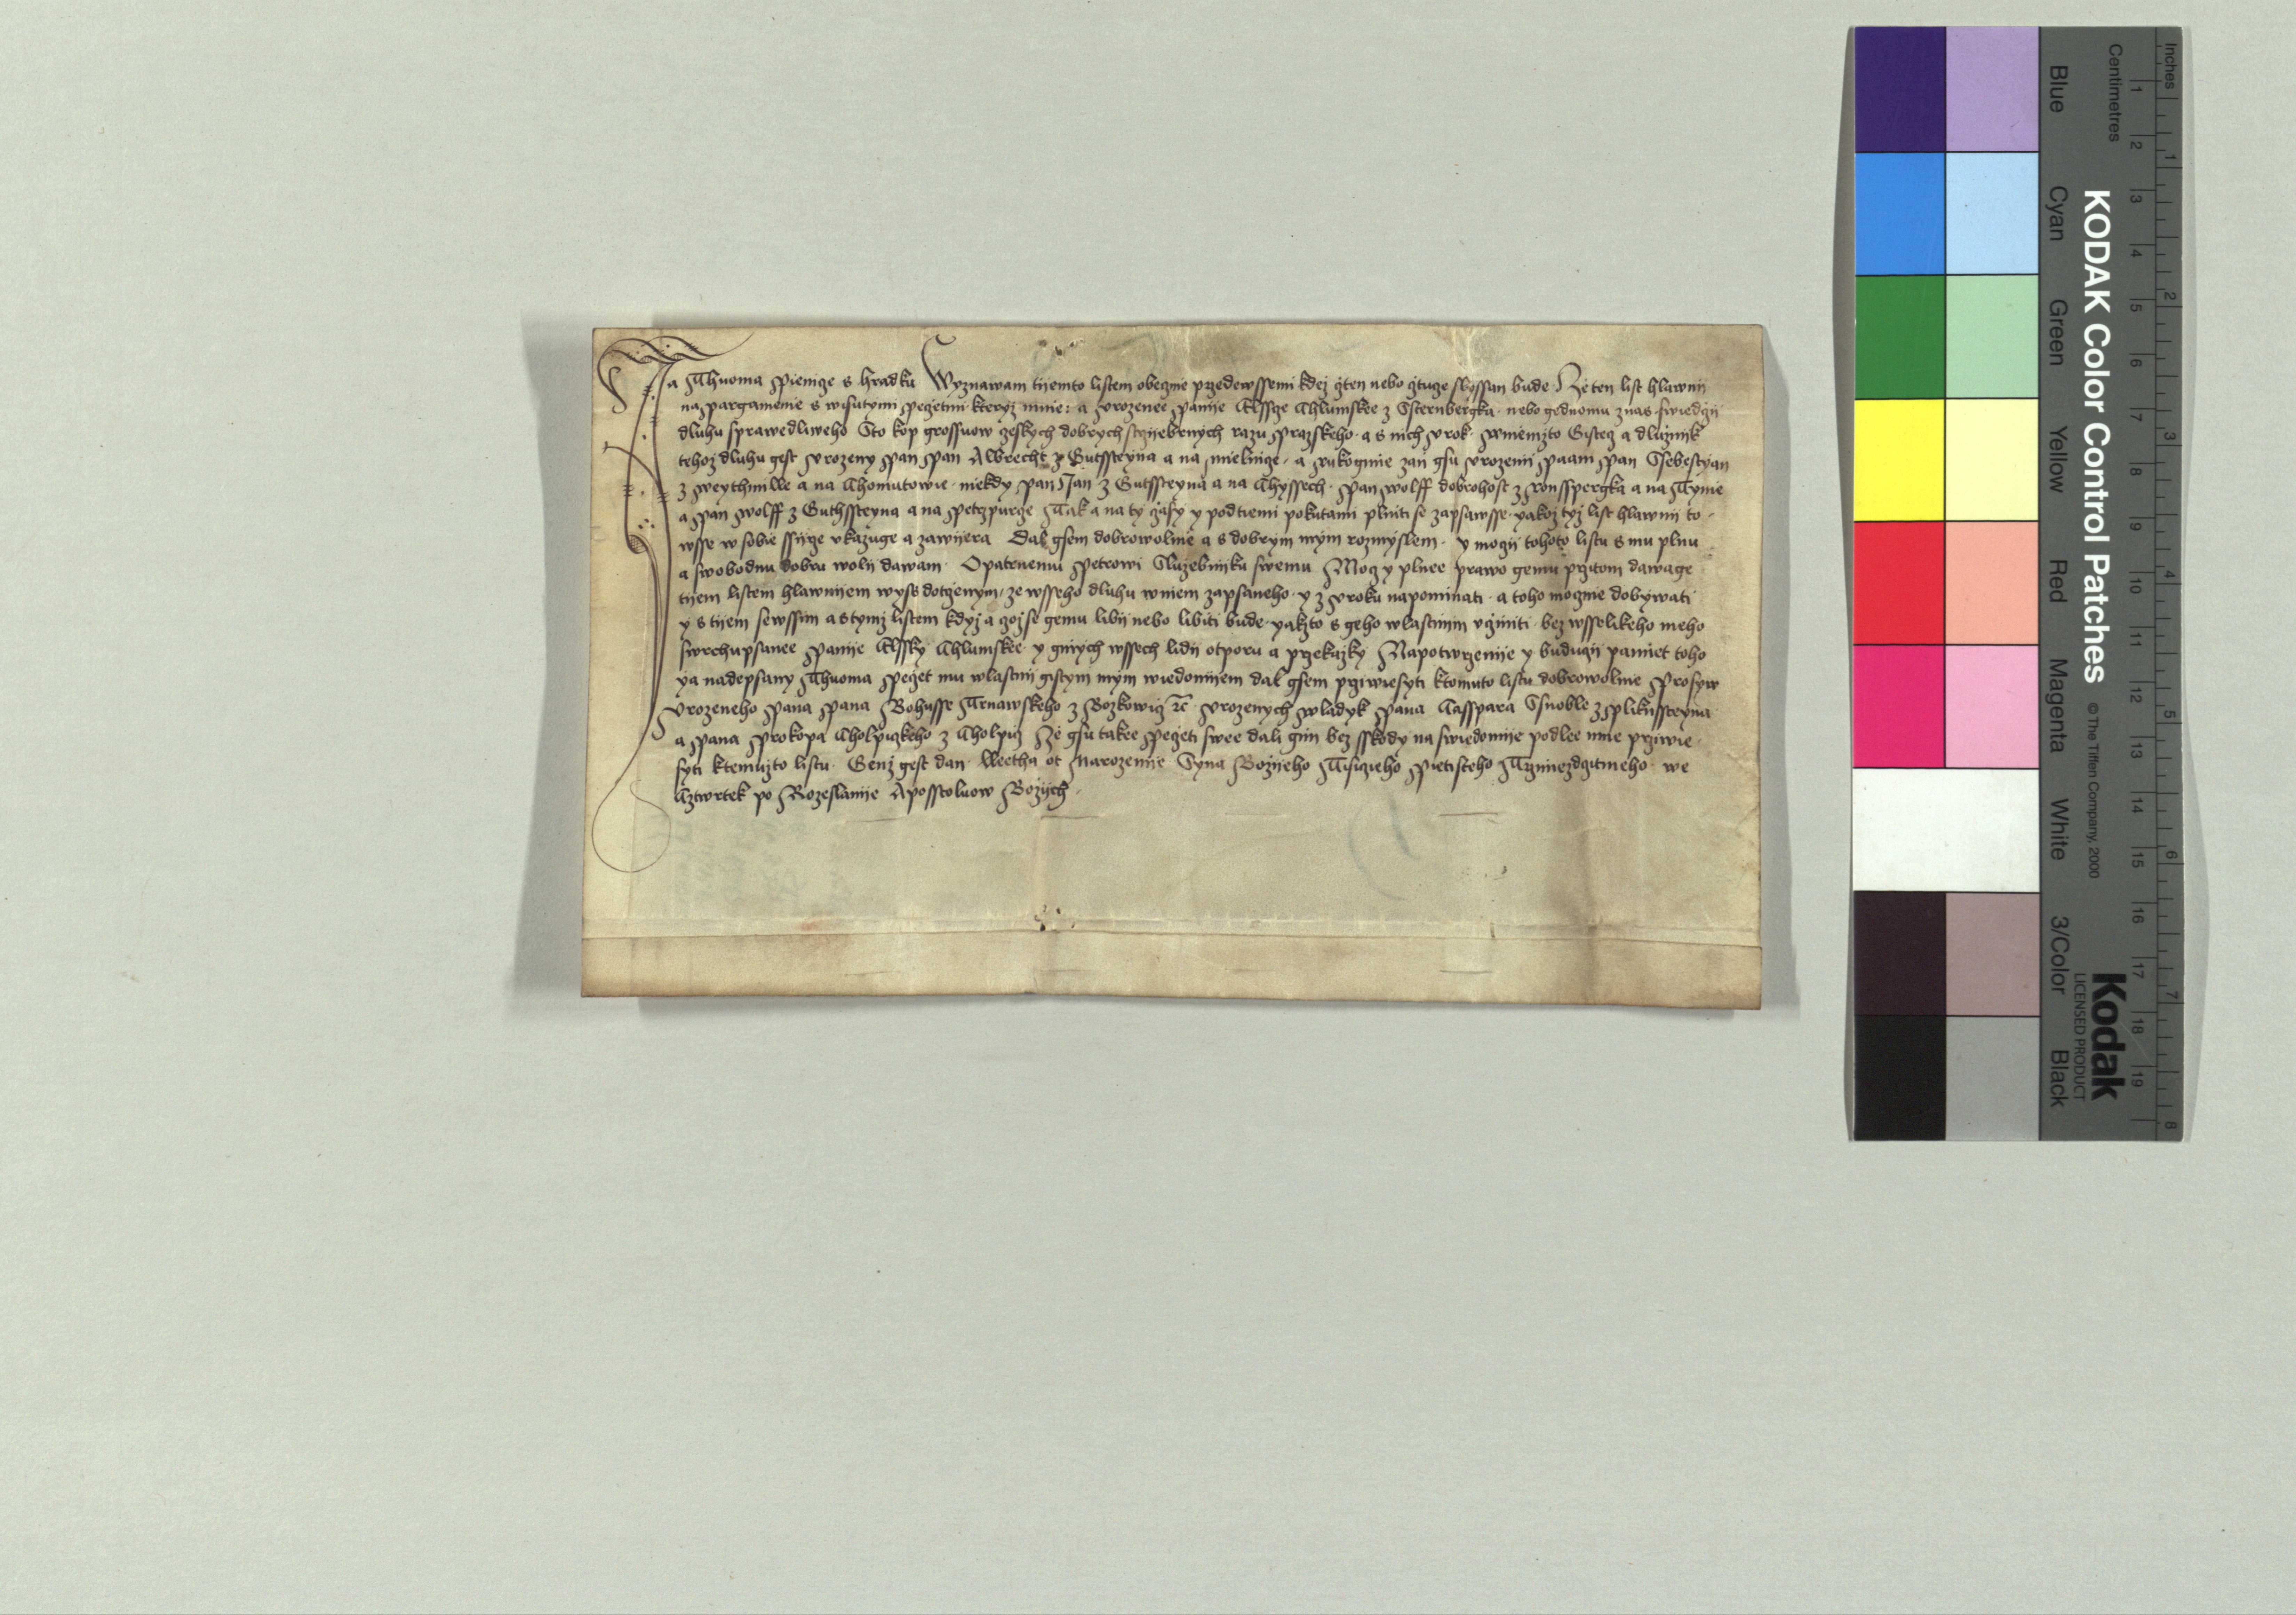 Ja Thuoma Pienize s hradku Wyznawam tijemto listem obeznie przedewssemi kdez čten nebo čtuze slyssan bude Ze ten list hlawnij
na pargamenie s wisutymi pečetmi kteryz mnie: a Urozenee Panije Elssze Chlumskee z Ssternbergka nebo gednomu znas swiedčij
dluhu sprawedliweho Sto kop grossuow českych dobrych strzijebrnych razu Prazskeho a s nich Urok Wniemzto Gisteč a dlužnik
tehoz dluhu gest Urozeny Pan Pan Albrecht z Gutssteyna a na Mielnize a Rukogmie zan gsu Urozenij Paani Pan Ssebestyan
z Weythmille a na Chomutowie niekdy Pan Jan z Gutssteyna a na Chyssech Pan Wolff dobrohost z Ronsspergka a na Tynie
a Pan Wolff z Guthssteyna a na Petrzpurze Tak a na ty časy y podtiemi pokutami plniti se zapsawsse yakoz tyz list hlawnij to
wsse w sobie ssijrze ukazuge a zawijera Dal gsem dobrowolnie a s dobrym mym rozmyslem y mogij tohoto listu s mu plnu
a swobodnu dobru wolij dawam Opatrnemu Petrowi Sluzebniku swemu Moč y plnee prawo gemu przitom dawage
tijem listem hlawnijem wyss dotčenym ze wsseho dluhu wniem zapsaneho y z Uroku napominati a toho močnie dobywati
y s tijem sewssim a stymz listem kdyz a čozse gemu libij nebo libiti bude yakzto s geho wlastnim učiniti bez wsselikeho meho
swrchupsanee Panije Elssky Chlumskee y ginych wssech lidij otporu a przekazky Napotwrzenije y buduczij pamiet toho
ya nadepsany Thuoma Pečet mu wlastnij gistym mym wiedomijem dal gsem prziwiesyti ktomuto listu dobrowolnie Prosyw
Urozeneho Pana Pana Bohusse Trnawskeho z Bozkowič etc Urozenych Wladyk Pana Casspara Ssnoble z Pliknssteyna
a Pana Prokopa Cholpiczkeho z Cholpič Ze gsu takee Pečeti swee dali gim bez sskody na swiedomije podlee mne prziwie
syti ktemuzto listu Genz gest dan Leetha ot Narozenije Syna Božijeho Tisiczieho Pietisteho Trzmiezdczitmeho we
Cztwrtek po Rozeslanije Aposstoluow Božijch
KODAK Color Control Patches
© The Tiffen Company, 2000
Kodak
LICENSED PRODUCT
Inches 1 2 3 4 5 6 7 8
Centimetres 1 2 3 4 5 6 7 8 9 10 11 12 13 14 15 16 17 18 19
Blue Cyan Green Yellow Red Magenta White 3/Color Black